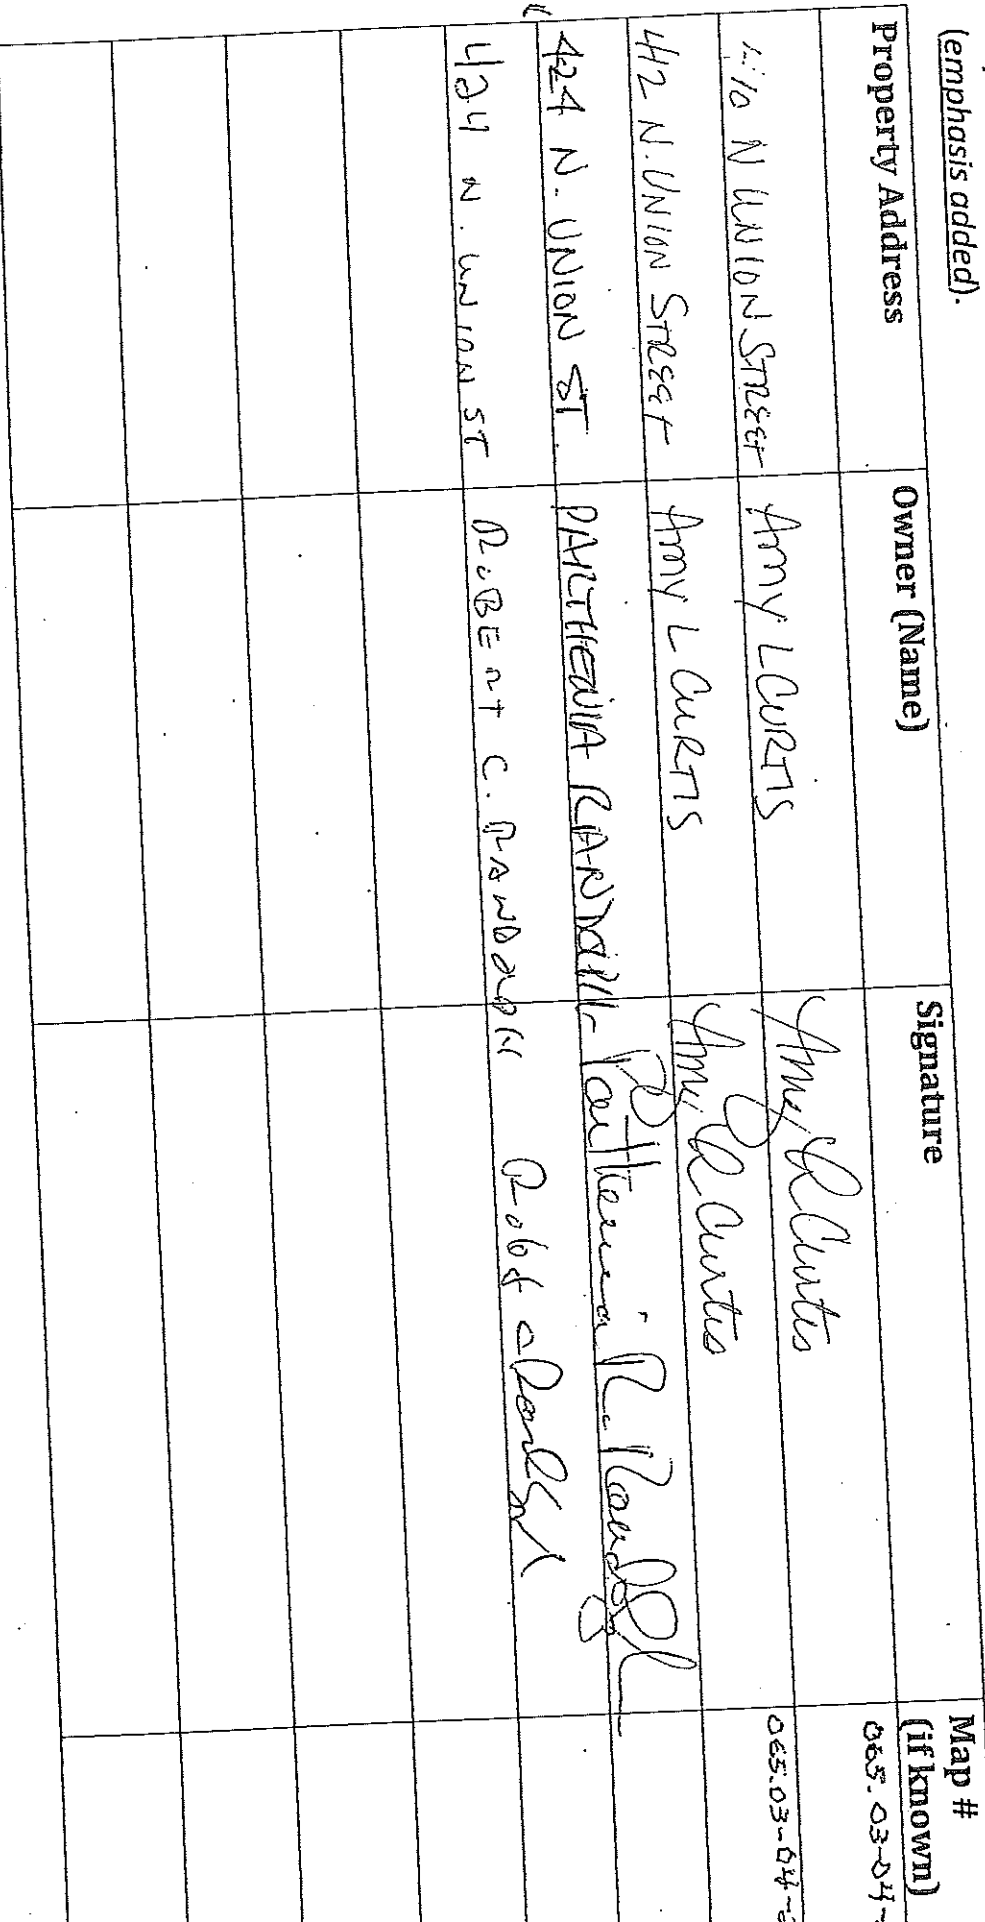 (emphasis added).
Property Address Owner (Name) Signature Map # (if known)
410 N UNION STREET AMY L CURTIS Amy L Curtis 065.03-04-
412 N. UNION STREET AMY L CURTIS Amy L Curtis 065.03-04-
424 N. UNION ST. PARTHENIA RANDOLPH Parthenia R. Randolph
424 N. UNION ST ROBERT C. RANDOLPH Robt C Randolph